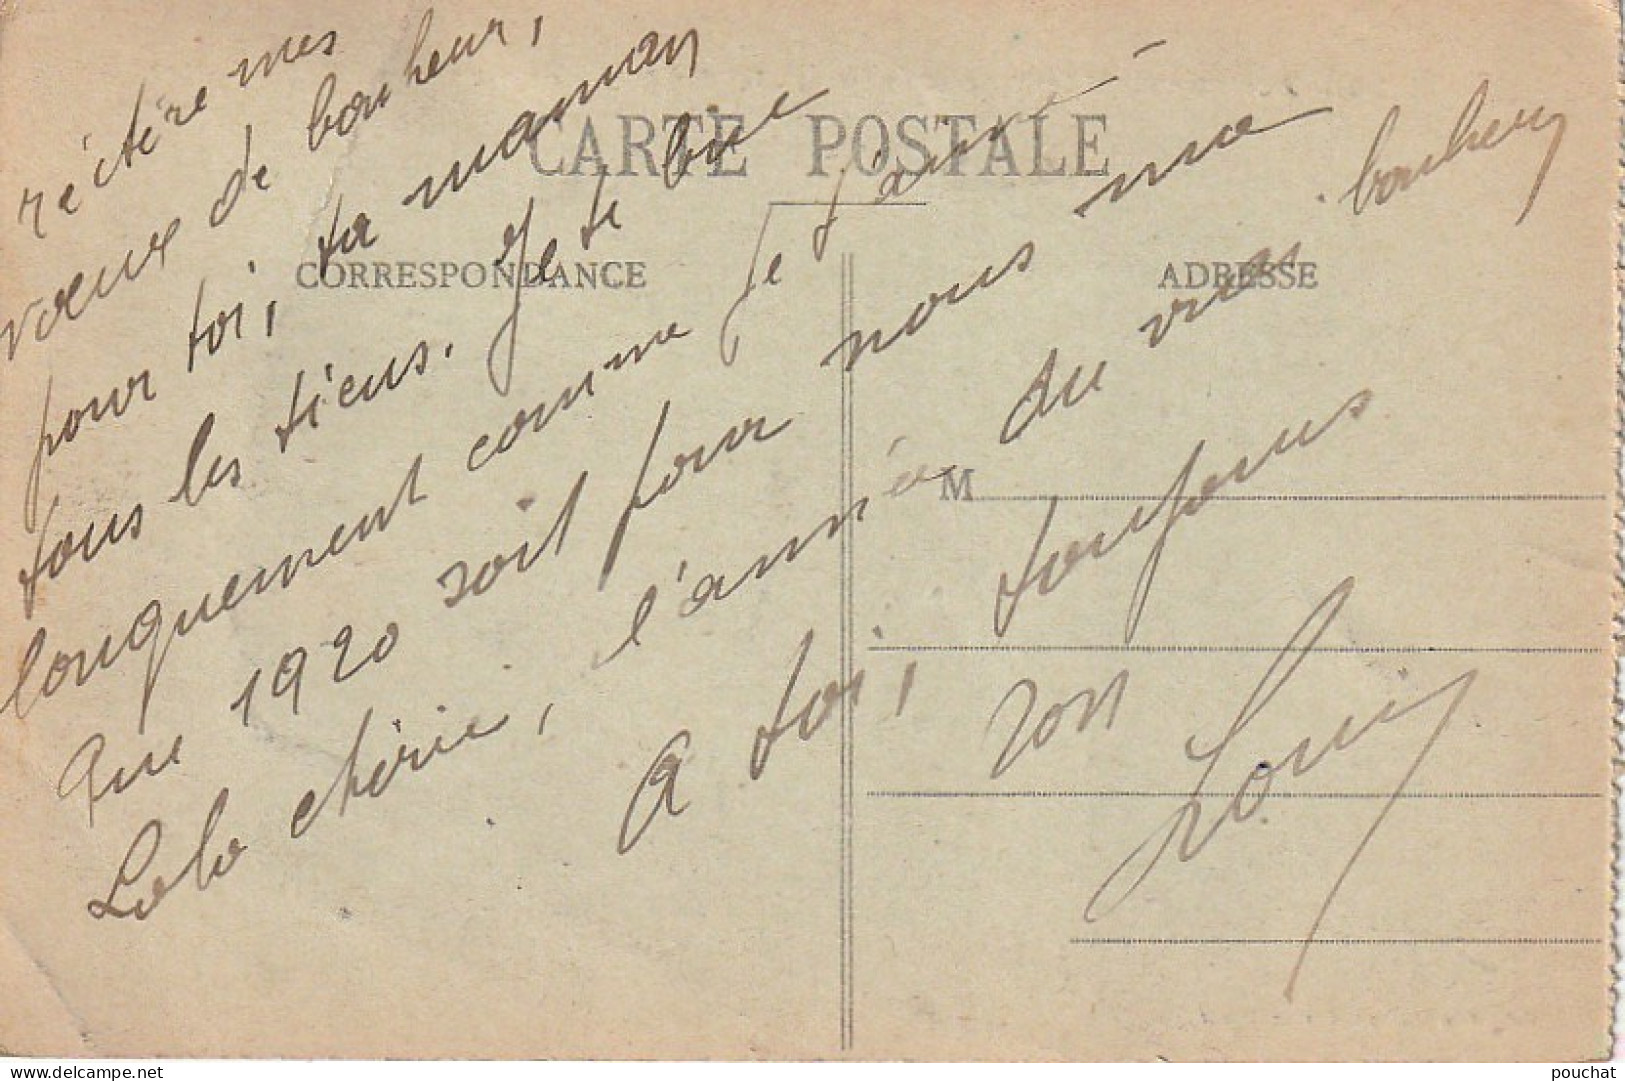 réitère mes
vœux de bonheur,
pour toi, ta maman
tous les tiens. Je te bise
longuement comme je t'aime
Que 1920 soit pour nous ma
Lolo chérie, l'année du vrai bonheur
A toi, toujours
ton
Louis
CARTE POSTALE
CORRESPONDANCE
ADRESSE
M
delcampe.net
pouchat